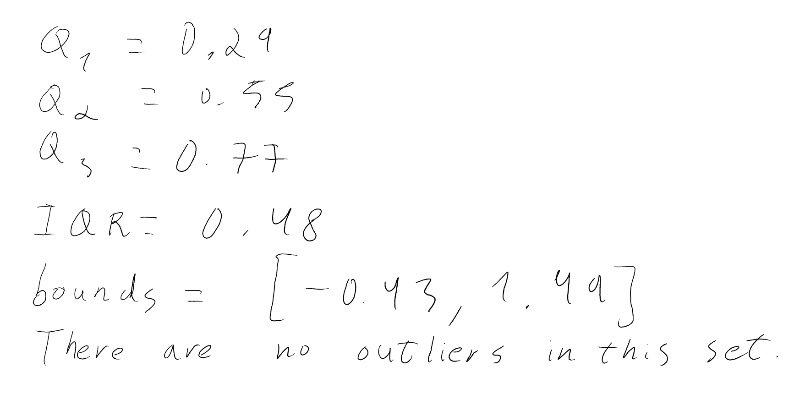 Q₁ = 0.29
Q₂ = 0.55
Q₃ = 0.77
IQR = 0.48
bounds = [-0.43, 1.49]
There are no outliers in this set.